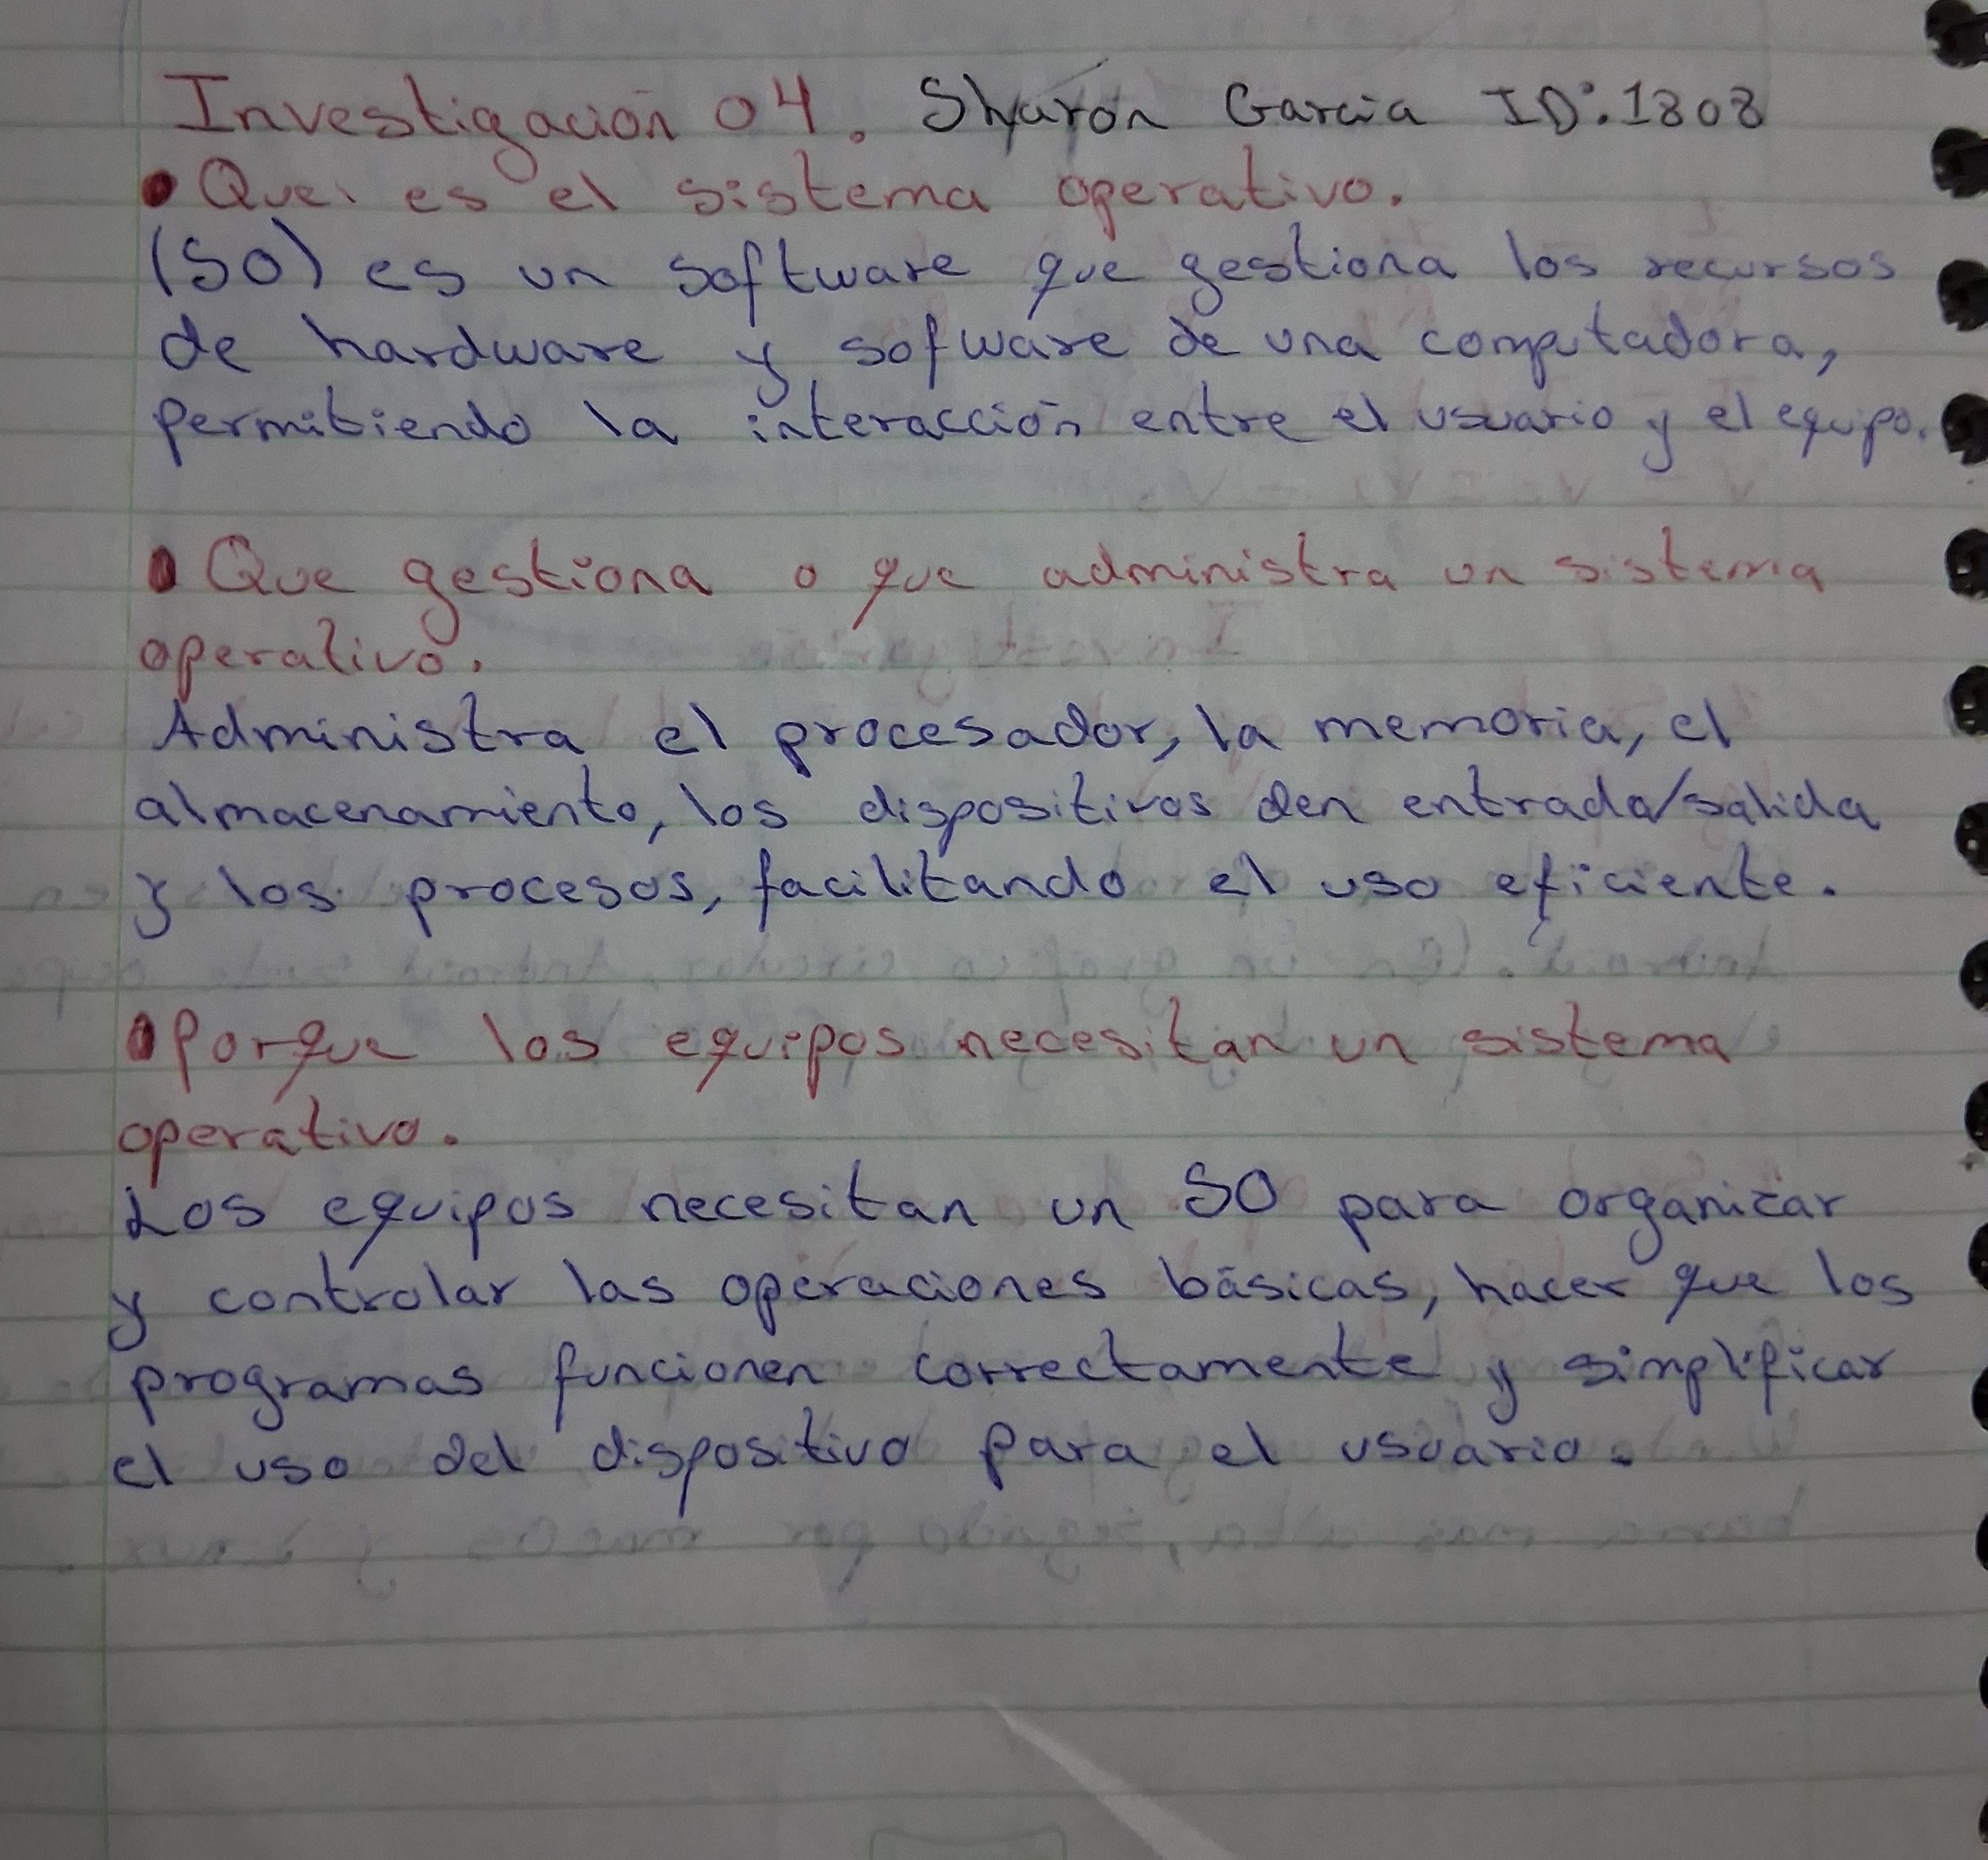 Investigación 04. Sharon Garcia ID:1808
• Que es el sistema operativo.
(SO) es un software que gestiona los recursos
de hardware y sofware de una computadora,
permitiendo la interacción entre el usuario y el equipo.
• Que gestiona o que administra un sistema
operativo.
Administra el procesador, la memoria, el
almacenamiento, los dispositivos den entrada/salida
y los procesos, facilitando el uso eficiente.
• Porque los equipos necesitan un sistema
operativo.
Los equipos necesitan un SO para organizar
y controlar las operaciones básicas, hacer que los
programas funcionen correctamente y simplificar
el uso del dispositivo para el usuario.